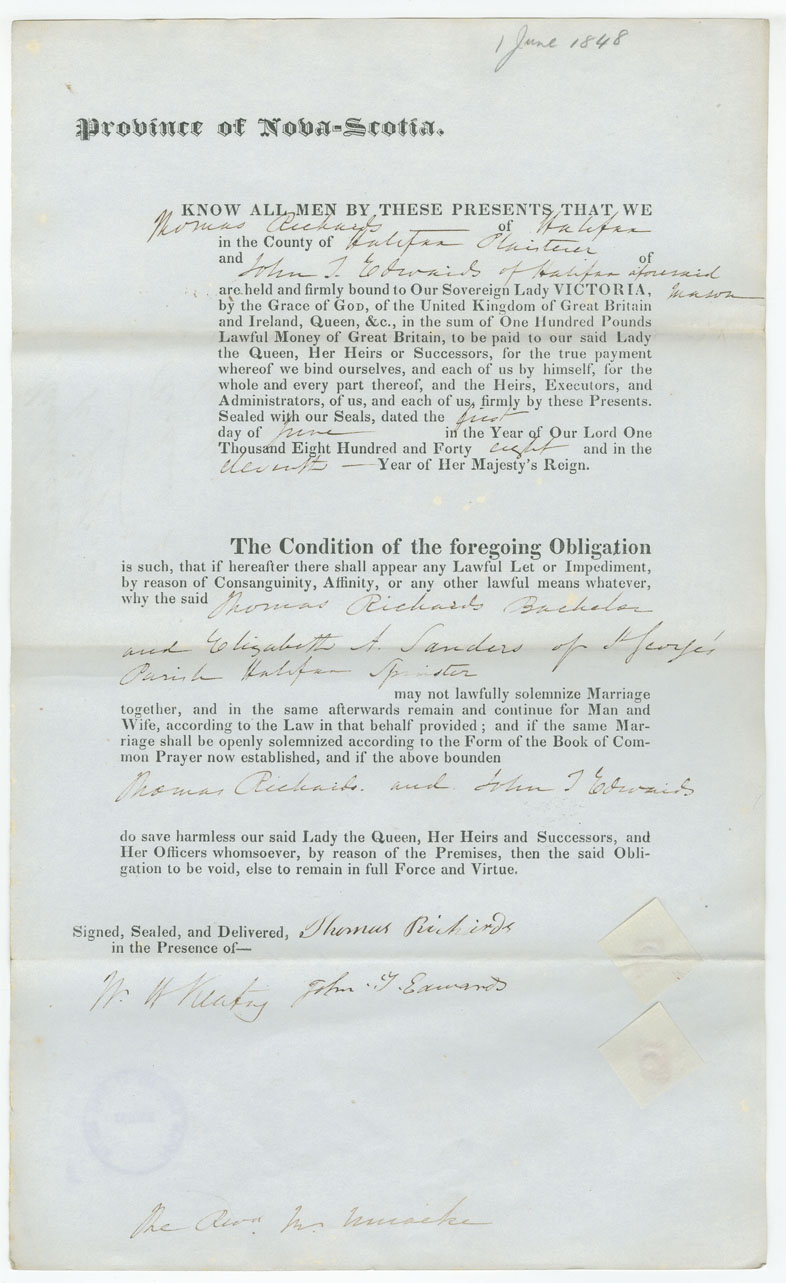 1 June 1848
Province of Nova-Scotia.
KNOW ALL MEN BY THESE PRESENTS THAT WE
Thomas Richards of Halifax
in the County of Halifax Plaisterer
and John T. Edwards of Halifax aforesaid of
are held and firmly bound to Our Sovereign Lady VICTORIA, Mason
by the Grace of GOD, of the United Kingdom of Great Britain
and Ireland, Queen, &c., in the sum of One Hundred Pounds
Lawful Money of Great Britain, to be paid to our said Lady
the Queen, Her Heirs or Successors, for the true payment
whereof we bind ourselves, and each of us by himself, for the
whole and every part thereof, and the Heirs, Executors, and
Administrators, of us, and each of us, firmly by these Presents.
Sealed with our Seals, dated the first
day of June in the Year of Our Lord One
Thousand Eight Hundred and Forty eight and in the
eleventh — Year of Her Majesty's Reign.
The Condition of the foregoing Obligation
is such, that if hereafter there shall appear any Lawful Let or Impediment,
by reason of Consanguinity, Affinity, or any other lawful means whatever,
why the said Thomas Richards Bachelor
and Elizabeth A. Sanders of St George's
Parish Halifax Spinster
may not lawfully solemnize Marriage
together, and in the same afterwards remain and continue for Man and
Wife, according to the Law in that behalf provided ; and if the same Mar-
riage shall be openly solemnized according to the Form of the Book of Com-
mon Prayer now established, and if the above bounden
Thomas Richards. and John T Edwards
do save harmless our said Lady the Queen, Her Heirs and Successors, and
Her Officers whomsoever, by reason of the Premises, then the said Obli-
gation to be void, else to remain in full Force and Virtue.
Signed, Sealed, and Delivered, Thomas Richirds
in the Presence of—
W. H Keating John T. Edwards
The Revd. Mr Uniacke